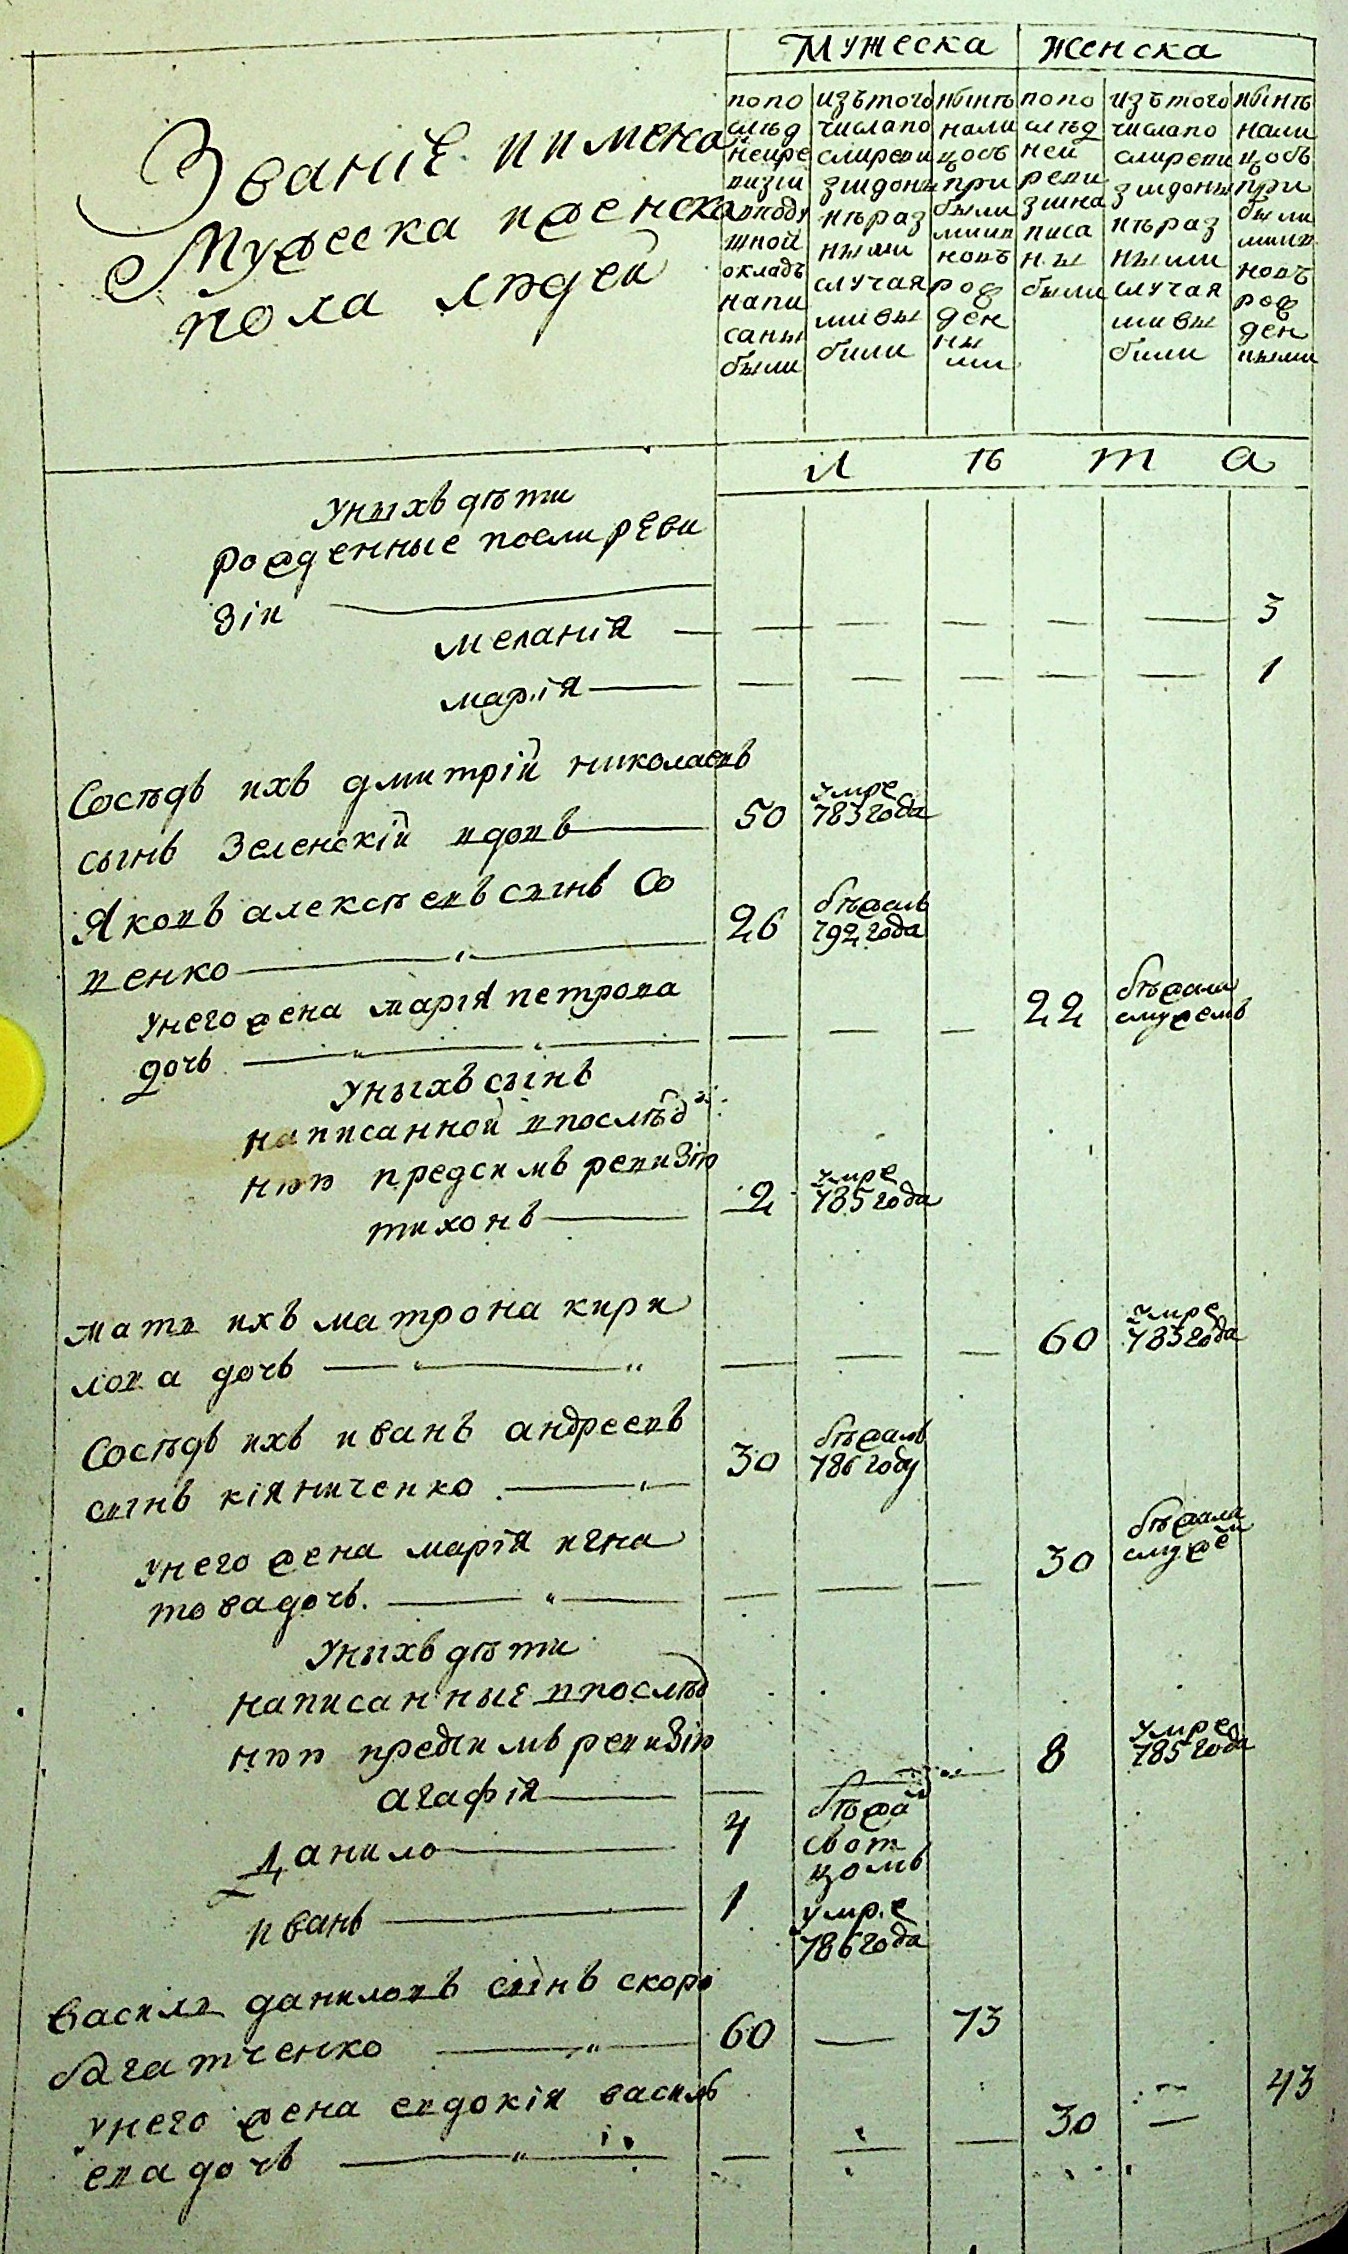 Мужеска женска
Званіе и имена
Мужеска и женска
пола людей
по по
слѣд
ней ре
визіи
в поду
шной
окладъ
напи
саны
были
изъ того
числа по
сли реви
зіи до ны
нѣ раз
ными
случая
ми вы
были
нынѣ
нали
цо съ
при
были
ми и в
новъ
рож
ден
ны
ми
по по
слѣд
ней
реви
зіи на
писа
ны
были
изъ того
числа по
сли реви
зіи до ны
нѣ раз
ными
случая
ми вы
были
нынѣ
нали
цо съ
при
были
ми и в
новъ
рож
ден
ными
л ѣ т а
У ныхъ дѣти
рожденные посли реви
зіи
меланія 3
марія 1
Сосѣдъ ихъ дмитрій николаевъ
сынъ Зеленскій вдовъ 50 умре 783 года
Яковъ алексѣевъ сынъ Со
венко 26 бѣжалъ 792 года
у него жена марія петрова
дочь 22 бѣжала с мужемъ
У ныхъ сынъ
написанной в послѣд
нюю предсимъ ревизію
тихонъ 2 умре 785 года
мать ихъ матрона кири
лова дочь 60 умре 783 года
Сосѣдъ ихъ иванъ андреевъ
сынъ кіяниченко 30 бѣжалъ 786 году
у него жена марія игна
това дочь 30 бѣжала с мужем
У ныхъ дѣти
написанные в послѣд
нюю предсимъ ревизію
агафія 8 умре 785 года
Данило 4 бѣжал съ от цомъ
иванъ 1 умре 786 года
василь даниловъ сынъ скоро
багатченко 60 73
у него жена евдокія василь
ева дочь 30 43